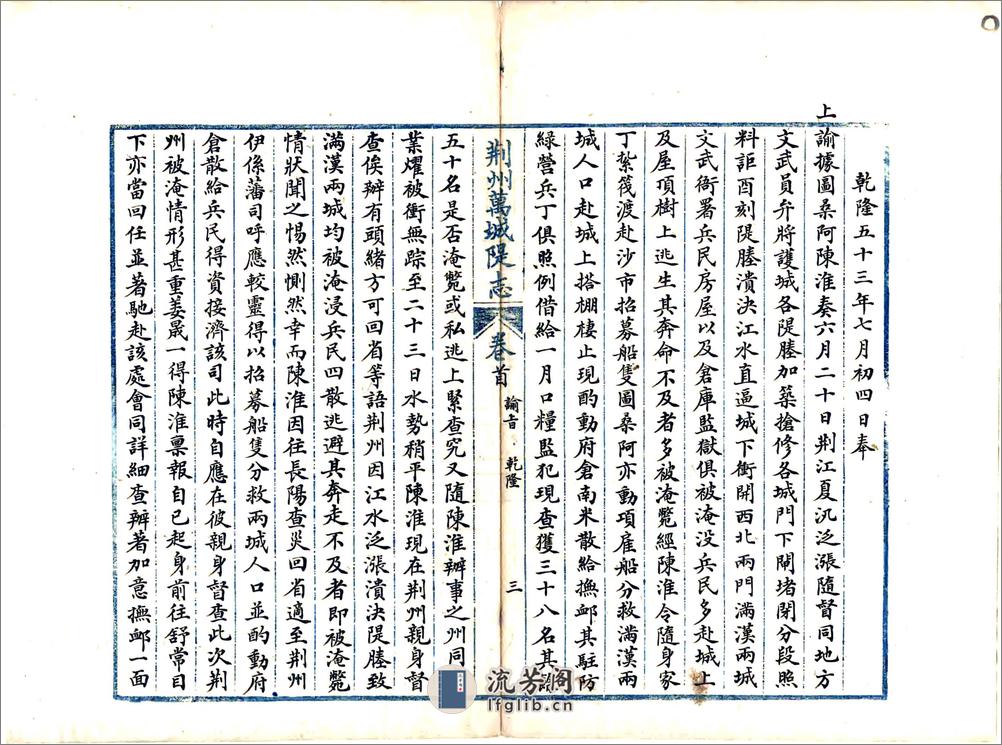 乾隆五十三年七月初四日奉
上諭據圖桑阿陳淮奏六月二十日荆江夏汛泛漲隨督同地方
文武員弁將護城各隄塍加築搶修各城門下閘堵閉分段照
料詎酉刻隄塍潰決江水直逼城下衝開西北兩門滿漢兩城
文武衙署兵民房屋以及倉庫監獄俱被淹没兵民多赴城上
及屋項樹上逃生其奔命不及者多被淹斃經陳淮令隨身家
丁紮筏渡赴沙市招募船隻圖桑阿亦動項雇船分救滿漢兩
城人口赴城上搭棚棲止現酌動府倉南米散給撫䘏其駐防
綠營兵丁俱照例借給一月口糧監犯現查獲三十八名其
荆州萬城隄志 卷首 諭旨 乾隆 三
五十名是否淹斃或私逃上緊查究又隨陳淮辦事之州同
業燿被衝無踪至二十三日水勢稍平陳淮現在荆州親身督
查俟辦有頭緒方可回省等語荆州因江水泛漲潰決隄塍致
滿漢兩城均被淹浸兵民四散逃避其奔走不及者即被淹斃
情狀聞之惕然惻然幸而陳淮因往長陽查災回省適至荆州
伊係藩司呼應較靈得以招募船隻分救兩城人口並酌動府
倉散給兵民得資接濟該司此時自應在彼親身督查此次荆
州被淹情形甚重姜晟一得陳淮禀報自已起身前往舒常目
下亦當回任並著馳赴該處會同詳細查辦著加意撫䘏一面
流芳阁
lfglib.cn